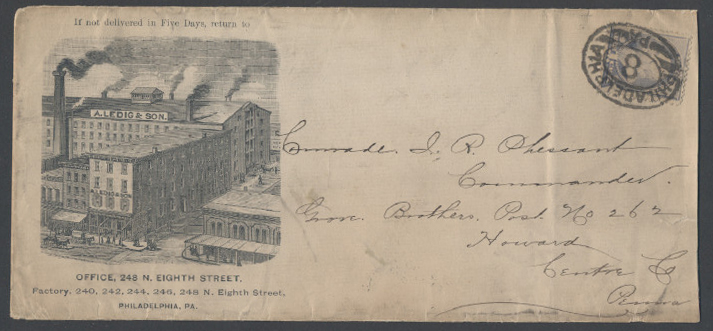 If not delivered in Five Days, return to
A. LEDIG & SON.
OFFICE, 248 N. EIGHTH STREET.
Factory, 240, 242, 244, 246, 248 N. Eighth Street,
PHILADELPHIA, PA.
PHILADELPHIA
PA
8
Comrade. I. R.
Commander.
Grove. Brothers. Post. No 262
Howard
Centre Co
Penna